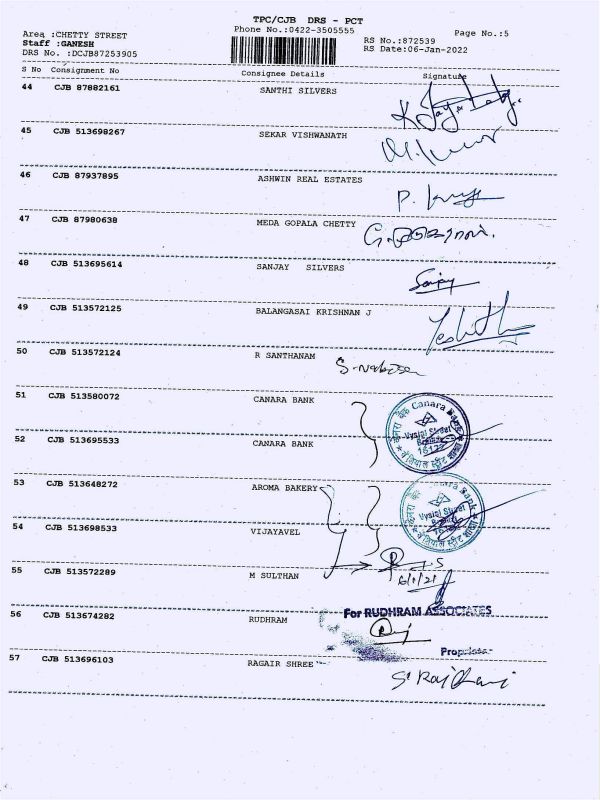 TPC/CJB DRS - PCT
Area :CHETTY STREET
Phone No.:0422-3505555
Page No.:5
Staff :GANESH
RS No.:872539
DRS No. :DCJB87253905
RS Date:06-Jan-2022
S No Consignment No Consignee Details Signature
44 CJB 87882161 SANTHI SILVERS
45 CJB 513698267 SEKAR VISHWANATH
46 CJB 87937895 ASHWIN REAL ESTATES
47 CJB 87980638 MEDA GOPALA CHETTY
48 CJB 513695614 SANJAY SILVERS Sanjay
49 CJB 513572125 BALANGASAI KRISHNAN J
50 CJB 513572124 R SANTHANAM
51 CJB 513580072 CANARA BANK
Canara Bank
Vysial Street
52 CJB 513695533 CANARA BANK
53 CJB 513648272 AROMA BAKERY
Canara Bank
Vysial Street
54 CJB 513698533 VIJAYAVEL
55 CJB 513572289 M SULTHAN
6/1/21
For RUDHRAM ASSOCIATES
56 CJB 513674282 RUDHRAM
Proprietor
57 CJB 513696103 RAGAIR SHREE